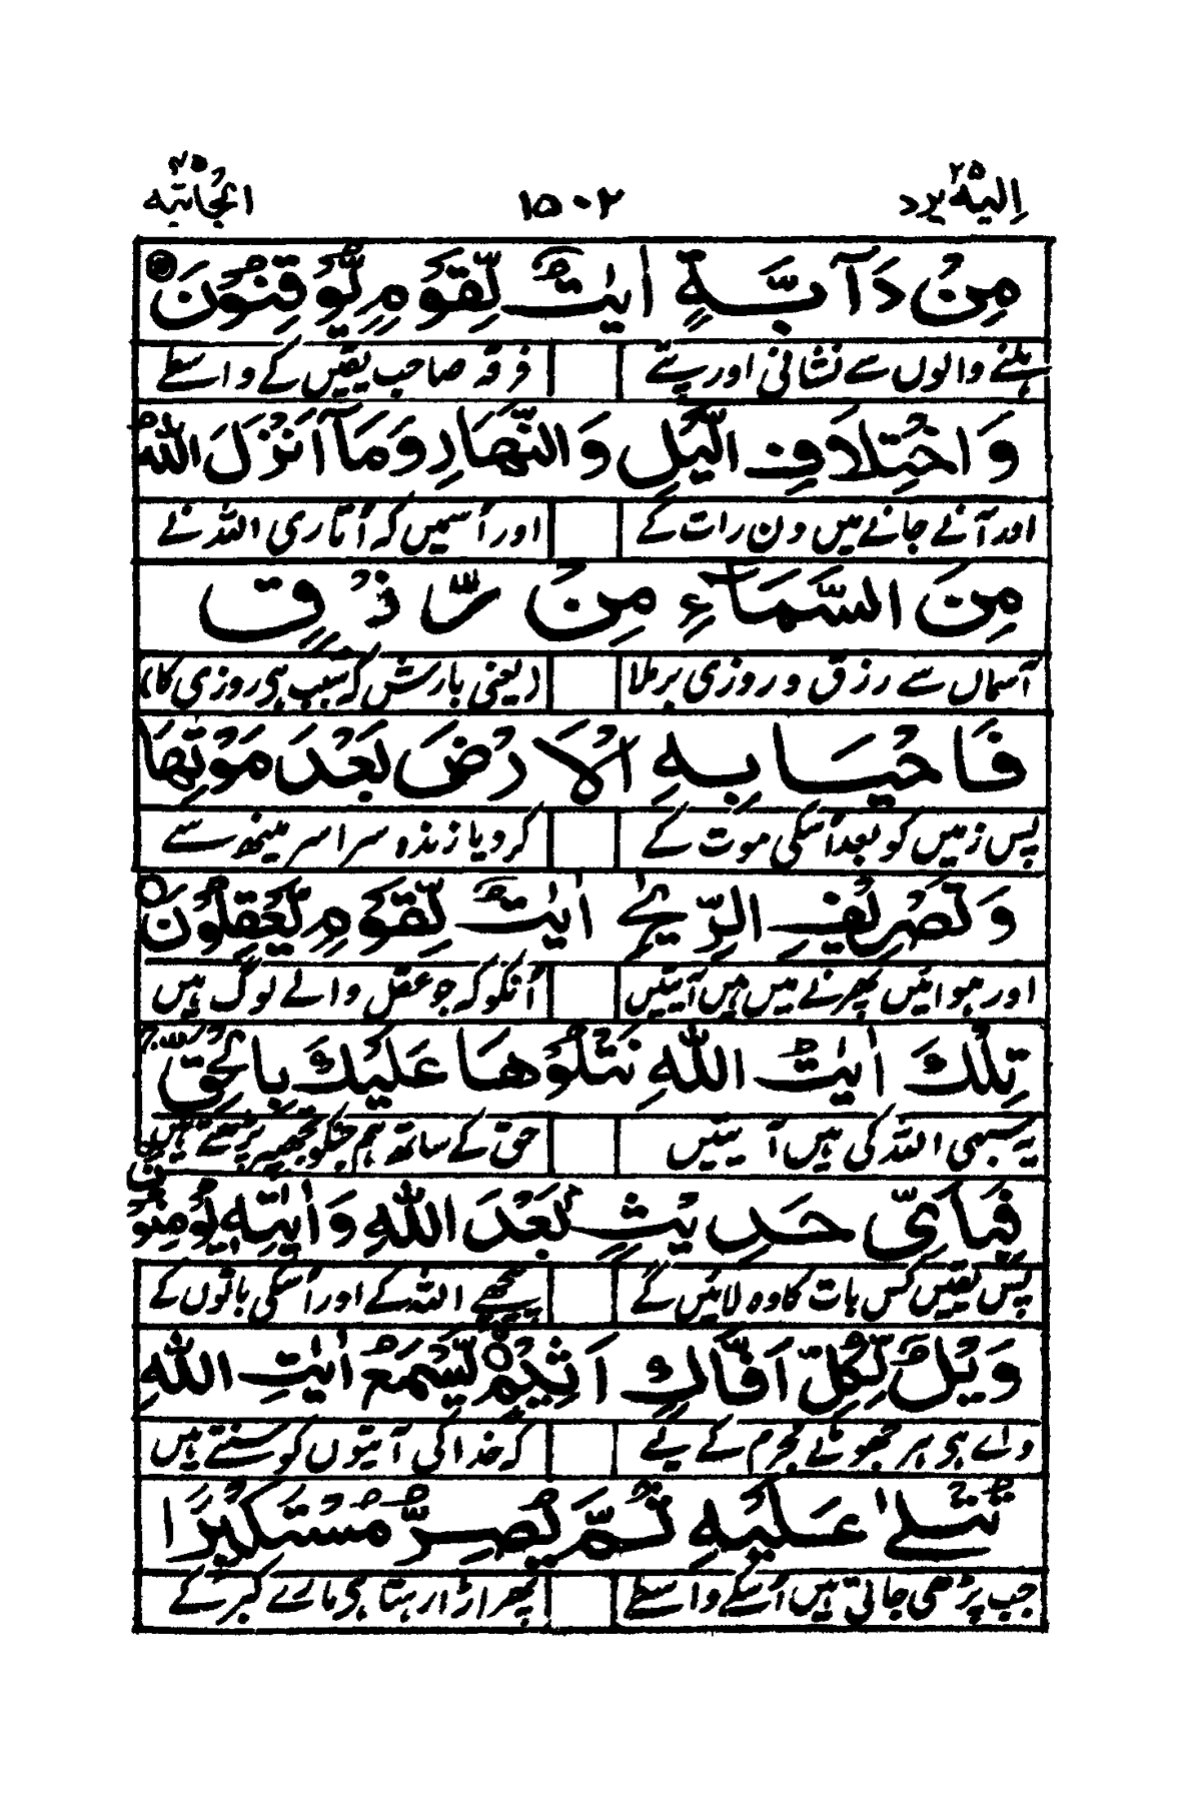 اِلیہ یرد ۲۵ ۱۵۰۲ الجاثیہ ۴۵
مِنْ دَآبَّةٍ اٰیٰتٌ لِّقَوْمٍ لِّوُقِنُوْنَ
ہلنے والوں سے نشانی اور پتے فرقہ صاحب یقیں کے واسطے
وَاخْتِلَافِ الَّیْلِ وَالنَّهَارِ وَمَآ اَنْزَلَ اللهُ
اور آنے جانے میں دن رات کے اور اُسمیں کہ اُتاری اللہ نے
مِنَ السَّمَآءِ مِنْ رِّزْقٍ
آسماں سے رزق و روزی برملا (یعنی بارش کہ سبب ہی روزی کا)
فَاَحْیَا بِهِ الْاَرْضَ بَعْدَ مَوْتِهَا
پس زمیں کو بعد اُسکی موت کے کردیا زندہ سراسر مینھ سے
وَتَصْرِیْفِ الرِّیٰحِ اٰیٰتٌ لِّقَوْمٍ یَّعْقِلُوْنَ
اور ہوائیں پھرنے میں ہیں آیتیں اُنکو کہ جو عقل والے لوگ ہیں
تِلْكَ اٰیٰتُ اللهِ نَتْلُوْهَا عَلَیْكَ بِالْحَقِّ ج
یہ سبھی اللہ کی ہیں آیتیں حق کے ساتھ ہم جنکو تجھپر پڑھتے ہیں
فَبِاَیِّ حَدِیْثٍۭ بَعْدَ اللهِ وَاٰیٰتِهٖ یُؤْمِنُوْنَ
پس یقیں کس بات کا وہ لائیں گے پیچھے اللہ کے اور اُسکی باتوں کے
وَیْلٌ لِّكُلِّ اَفَّاكٍ اَثِیْمٍ یَّسْمَعُ اٰیٰتِ اللهِ
وائے ہی ہر جھوٹے مجرم کے لیے کہ خدا کی آیتوں کو سنتے ہیں
تُتْلٰی عَلَیْهِ ثُمَّ یُصِرُّ مُسْتَكْبِرًا
جب پڑھی جاتی ہیں اُسکے واسطے پھر اڑا رہتا ہی مارے کبر کے